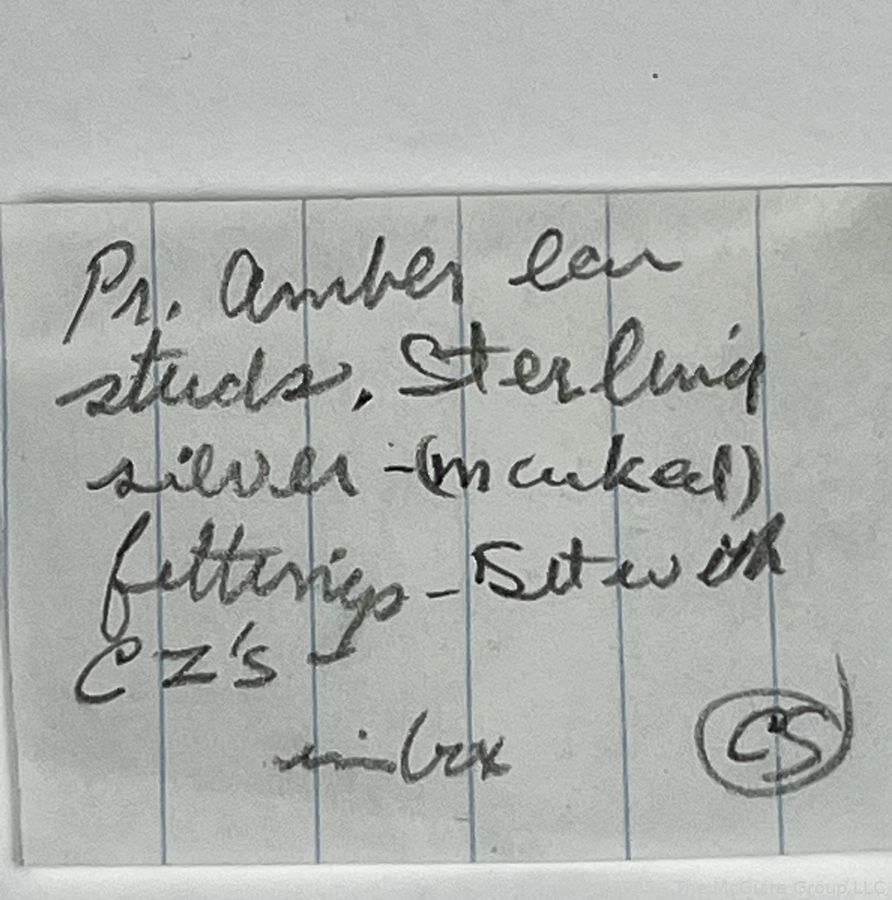 Pr. Amber ear
studs. Sterling
silver - (marked)
fittings - Set with
CZ's -
in box
CS
The McGuire Group LLC